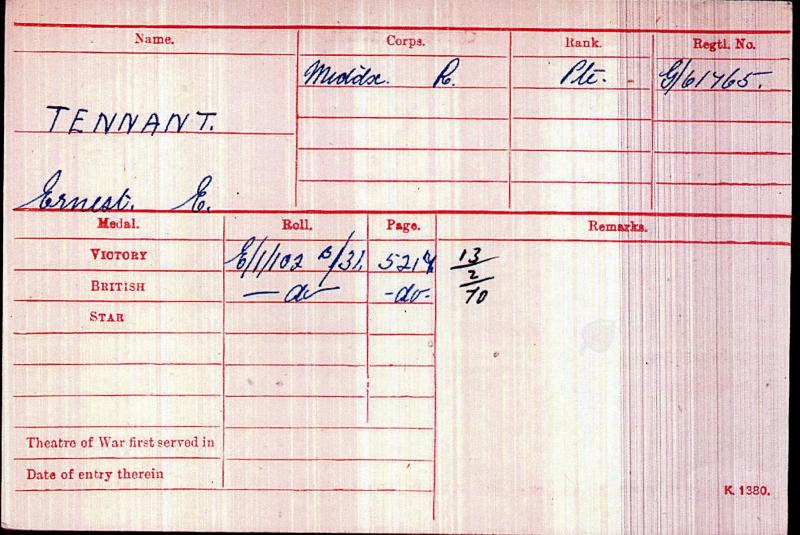 Name. Corps. Rank. Regtl. No.
Middx. R. Pte. G/61765.
TENNANT.
Ernest. E.
Medal. Roll. Page. Remarks.
VICTORY E/1/102 B/31. 5217 13
BRITISH —do— -do- 2
STAR 70
Theatre of War first served in
Date of entry therein
K. 1380.